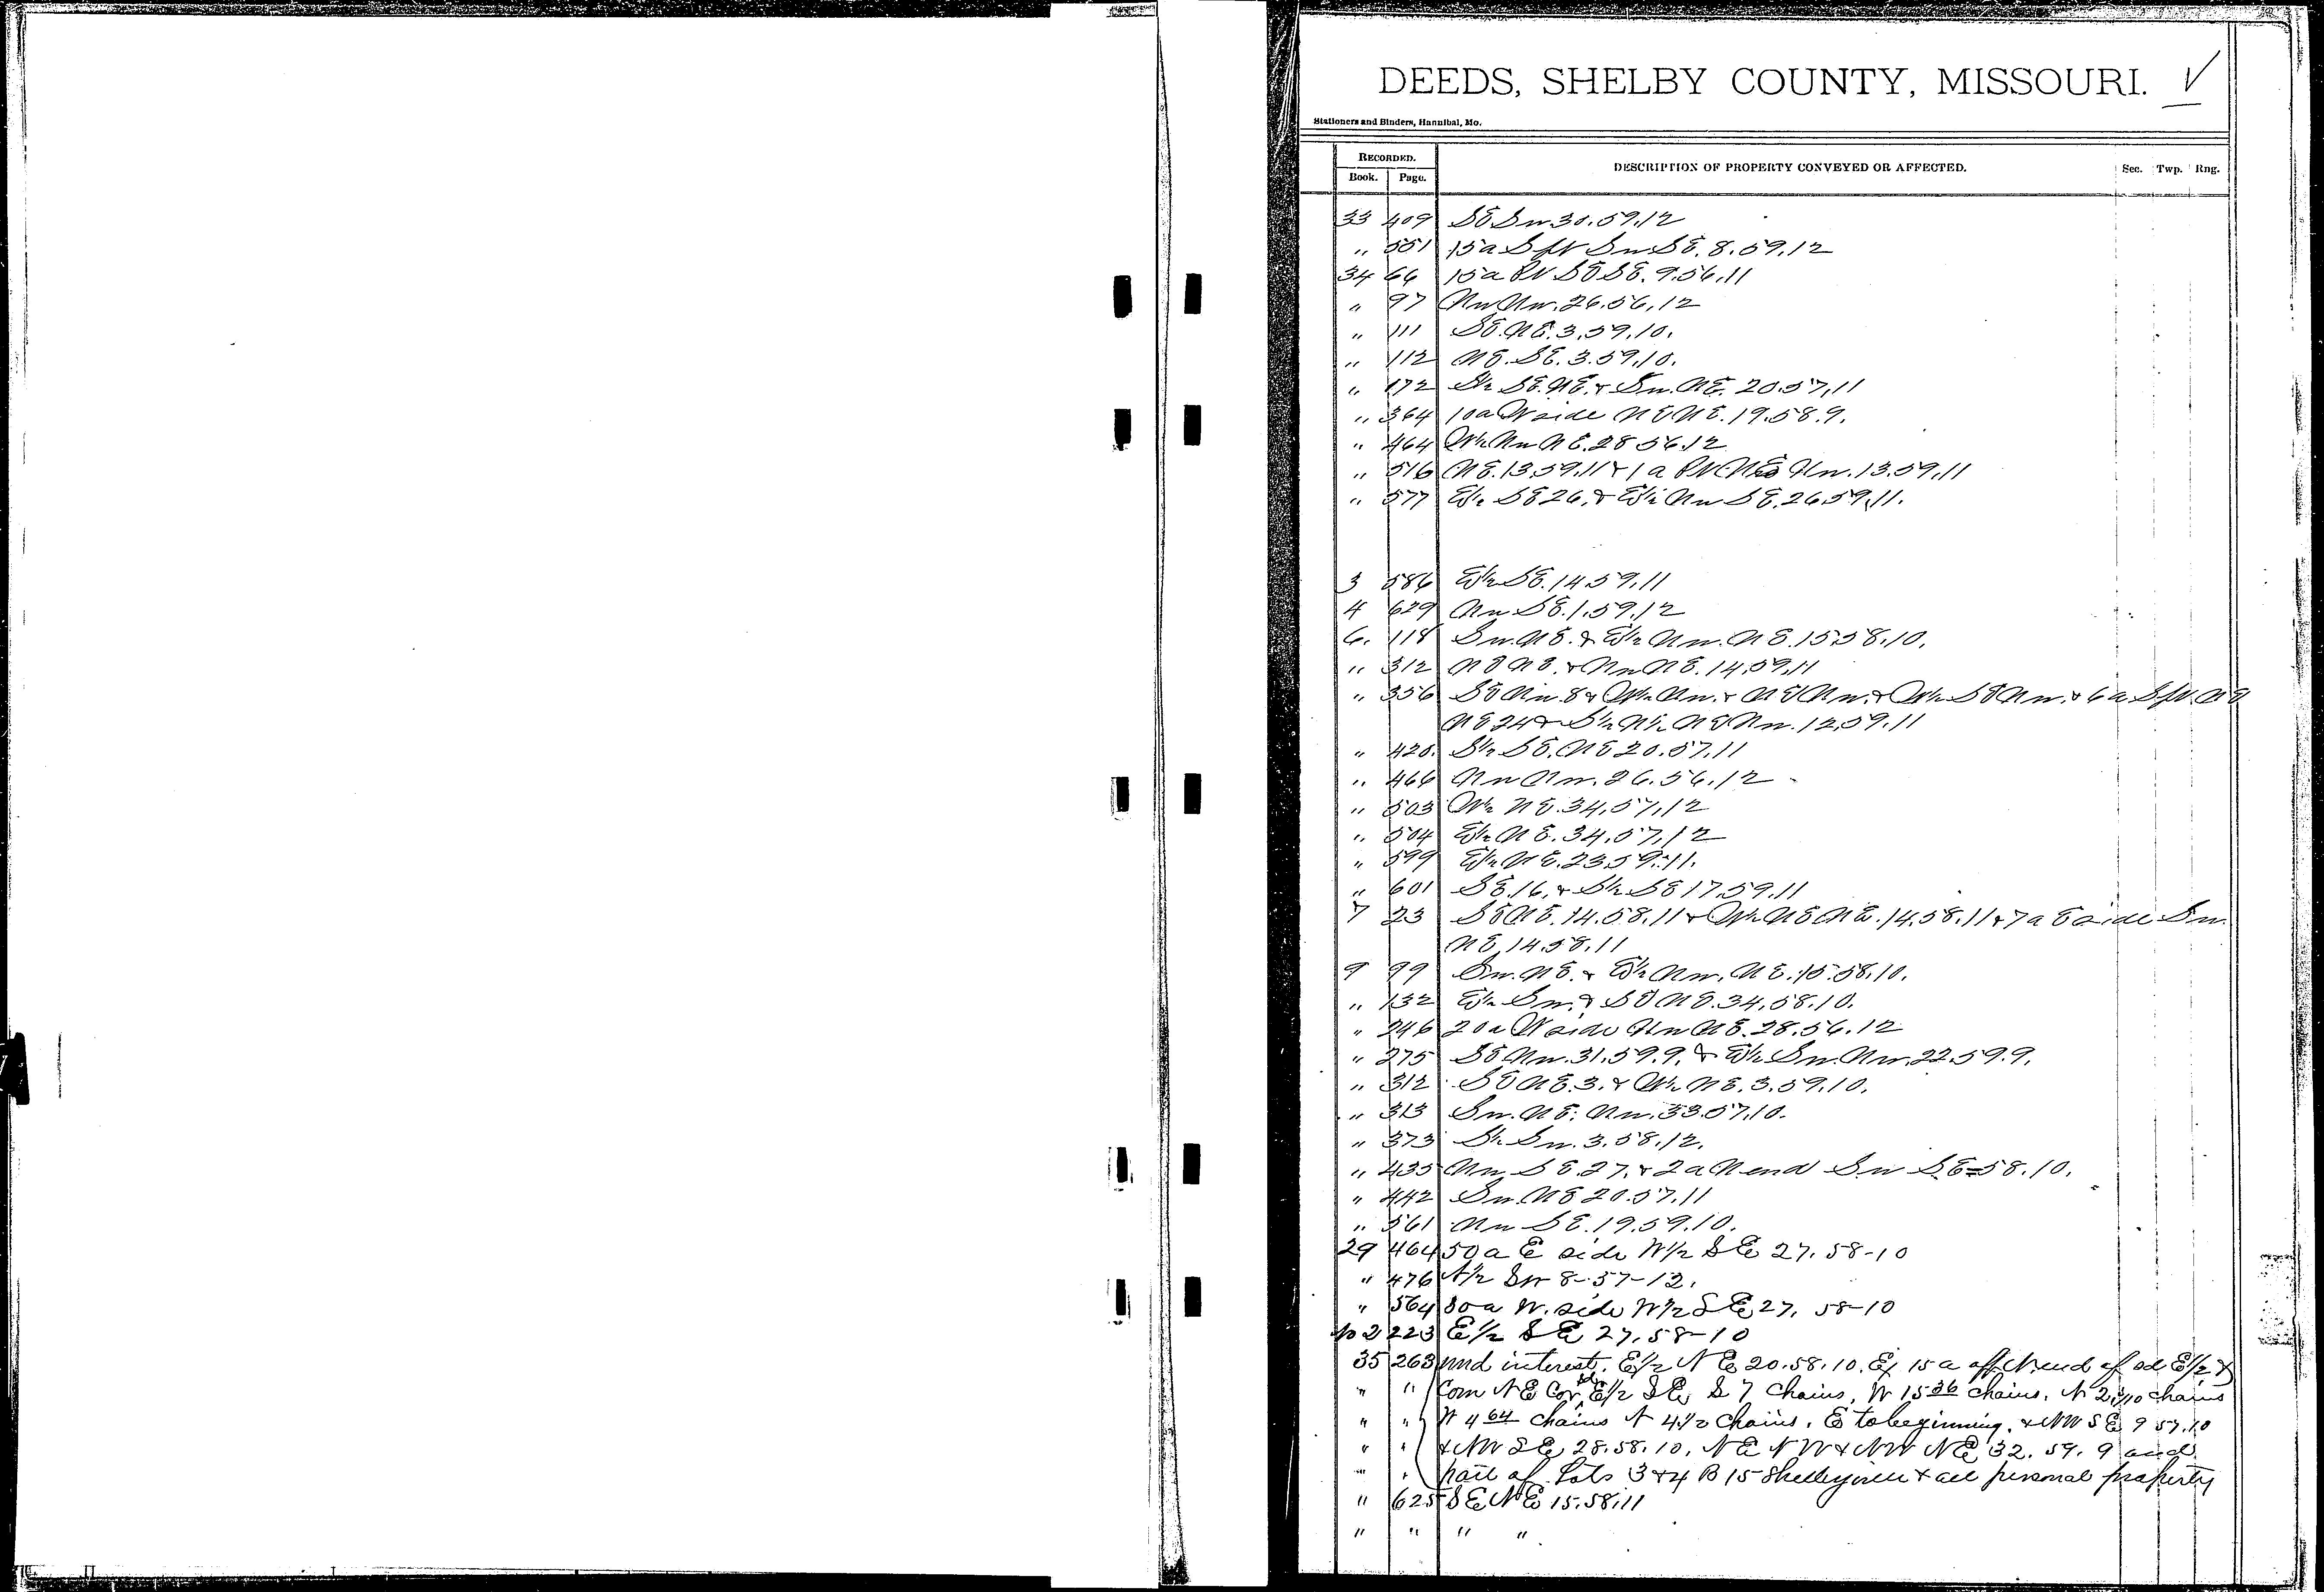 DEEDS, SHELBY COUNTY, MISSOURI. ✓
Stationers and Binders, Hannibal, Mo.
RECORDED.
Book. Page. DESCRIPTION OF PROPERTY CONVEYED OR AFFECTED. Sec. Twp. Rng.
33 409 SE Sw 30.59.12
" 551 15a S pt Sw SE. 8.59.12
34 66 15a Pt SE SE. 9.56.11
" 97 Nw Nw. 26.56.12
" 111 SE. NE. 3.59.10.
" 112 NE. SE. 3.59.10.
" 172 S½ SE. NE. & Sw. NE. 20.57.11
" 364 10a W side NE NE. 19.58.9.
" 464 W½ Nw NE. 28 56.12
" 516 NE. 13.59.11 & 1a Pt NE Nw. 13.59.11
" 577 E½ SE 26. & E½ Nw SE. 26.59.11.
3 586 E½ SE. 14.59.11
4 629 Nw SE. 1.59.12
6. 118 Sw. NE. & E½ Nw. NE. 15.58.10.
" 312 NE NE. & Nw NE. 14.59.11
" 356 SE Nw. 8 & W½ Nw. & NE Nw. & W½ SE Nw. & 6a S pt. NE
NE 24 & S½ N½ NE Nw. 12.59.11
" 420. S½ SE. NE 20.57.11
" 466 Nw Nw. 26.56.12
" 503 W½ NE. 34.57.12
" 504 E½ NE. 34.57.12
" 599 E½ NE. 23.59.11.
" 601 SE. 16. & S½ SE 17.59.11
7 23 SE NE. 14.58.11 & W½ NE NE. 14.58.11 & 7a E side Sw.
NE 14.58.11
9 99 Sw. NE. & E½ Nw. NE. 15.58.10.
" 132 E½ Sw. & SE NE. 34.58.10.
" 246 20a W side Nw NE. 28.56.12
" 275 SE Nw. 31.59.9. & E½ Sw. Nw. 22.59.9.
" 312 SE NE. 3. & W½ NE. 3.59.10.
" 313 Sw. NE. Nw. 33.57.10.
" 373 S½ Sw. 3.58.12.
" 435 Nw SE. 27. & 2a N end Sw SE = 58.10.
" 442 Sw. NE 20.57.11
" 561 Nw SE. 19.59.10.
29 464 50a E side W½ SE 27. 58-10
" 476 N½ SW 8-57-12.
" 564 30a W. side W½ SE 27. 58-10
223 E½ SE 27.58-10
35 263 und interest. E½ NE 20.58.10. Ex 15a off N end of sd E½ &
" " Com NE Cor sd E½ SE, S 7 chains, W 15 36 chains, N 2 3/10 chains
" " W 4 64 chains N 4½ chains, E to beginning. & NW SE 9 57.10
" " & NW SE 28.58.10, NE NW & NW NE 32. 59. 9 and
" " part of Lots 3 & 4 B 15 Shelbyville & all personal property
" 625 SE NE 15.58.11
" " " "